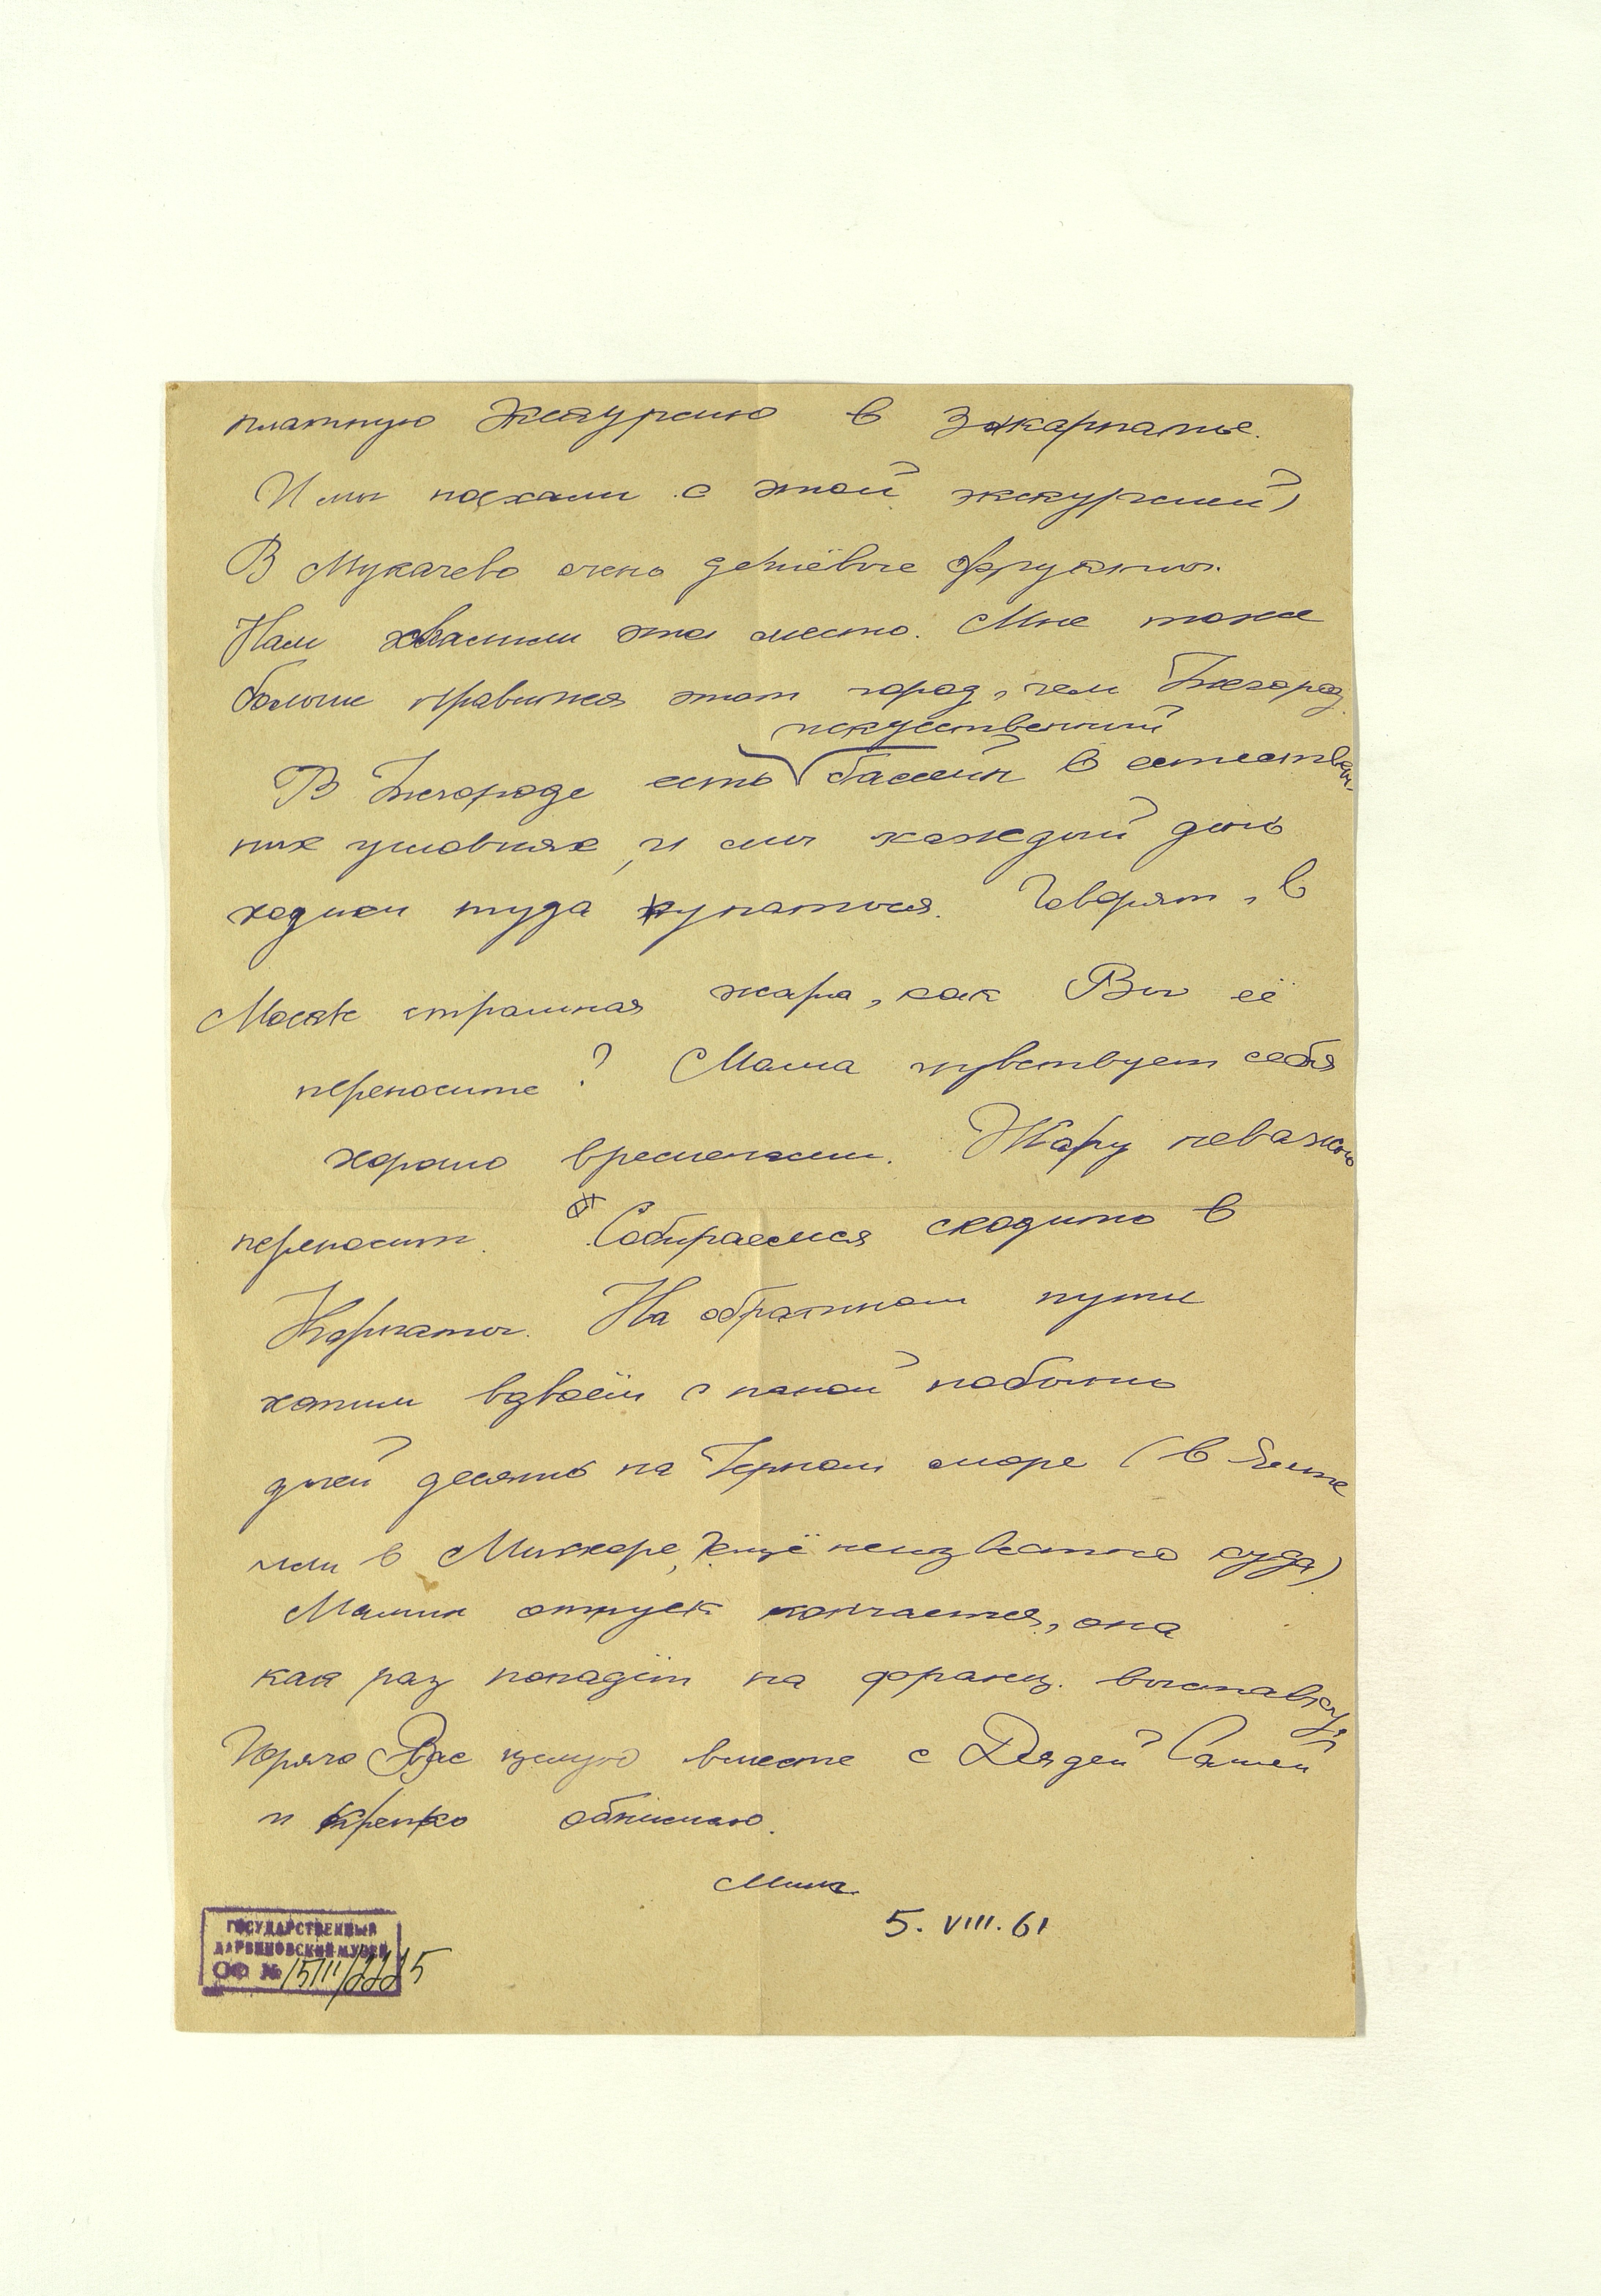 платную Экскурсию в Закарпатье.
И мы поехали с этой экскурсией)
В Мукачево очень дешёвые фрукты.
Нам хвалили это место. Мне тоже
больше нравится этот город, чем Ужгород.
искуственный
В Ужгороде есть бассейн в естествен-
ных условиях, и мы каждый день
ходили туда купаться. Говорят, в
Москве страшная жара, как Вы её
переносите? Мама чувствует себя
хорошо временами. Жару неважно
переносит. Собираемся сходить в
Карпаты. На обратном пути
хотим вдвоём с папой побыть
дней десять на Чёрном море (в Ялте
или в Мисхоре, ещё неизвестно куда)
Мамин отпуск кончается, она
как раз попадёт на франц. выставку.
Горячо Вас целую вместе с Дядей Сашей
и крепко обнимаю.
5. VIII. 61
ГОСУДАРСТВЕННЫЙ
ДАРВИНОВСКИЙ МУЗЕЙ
ОФ №